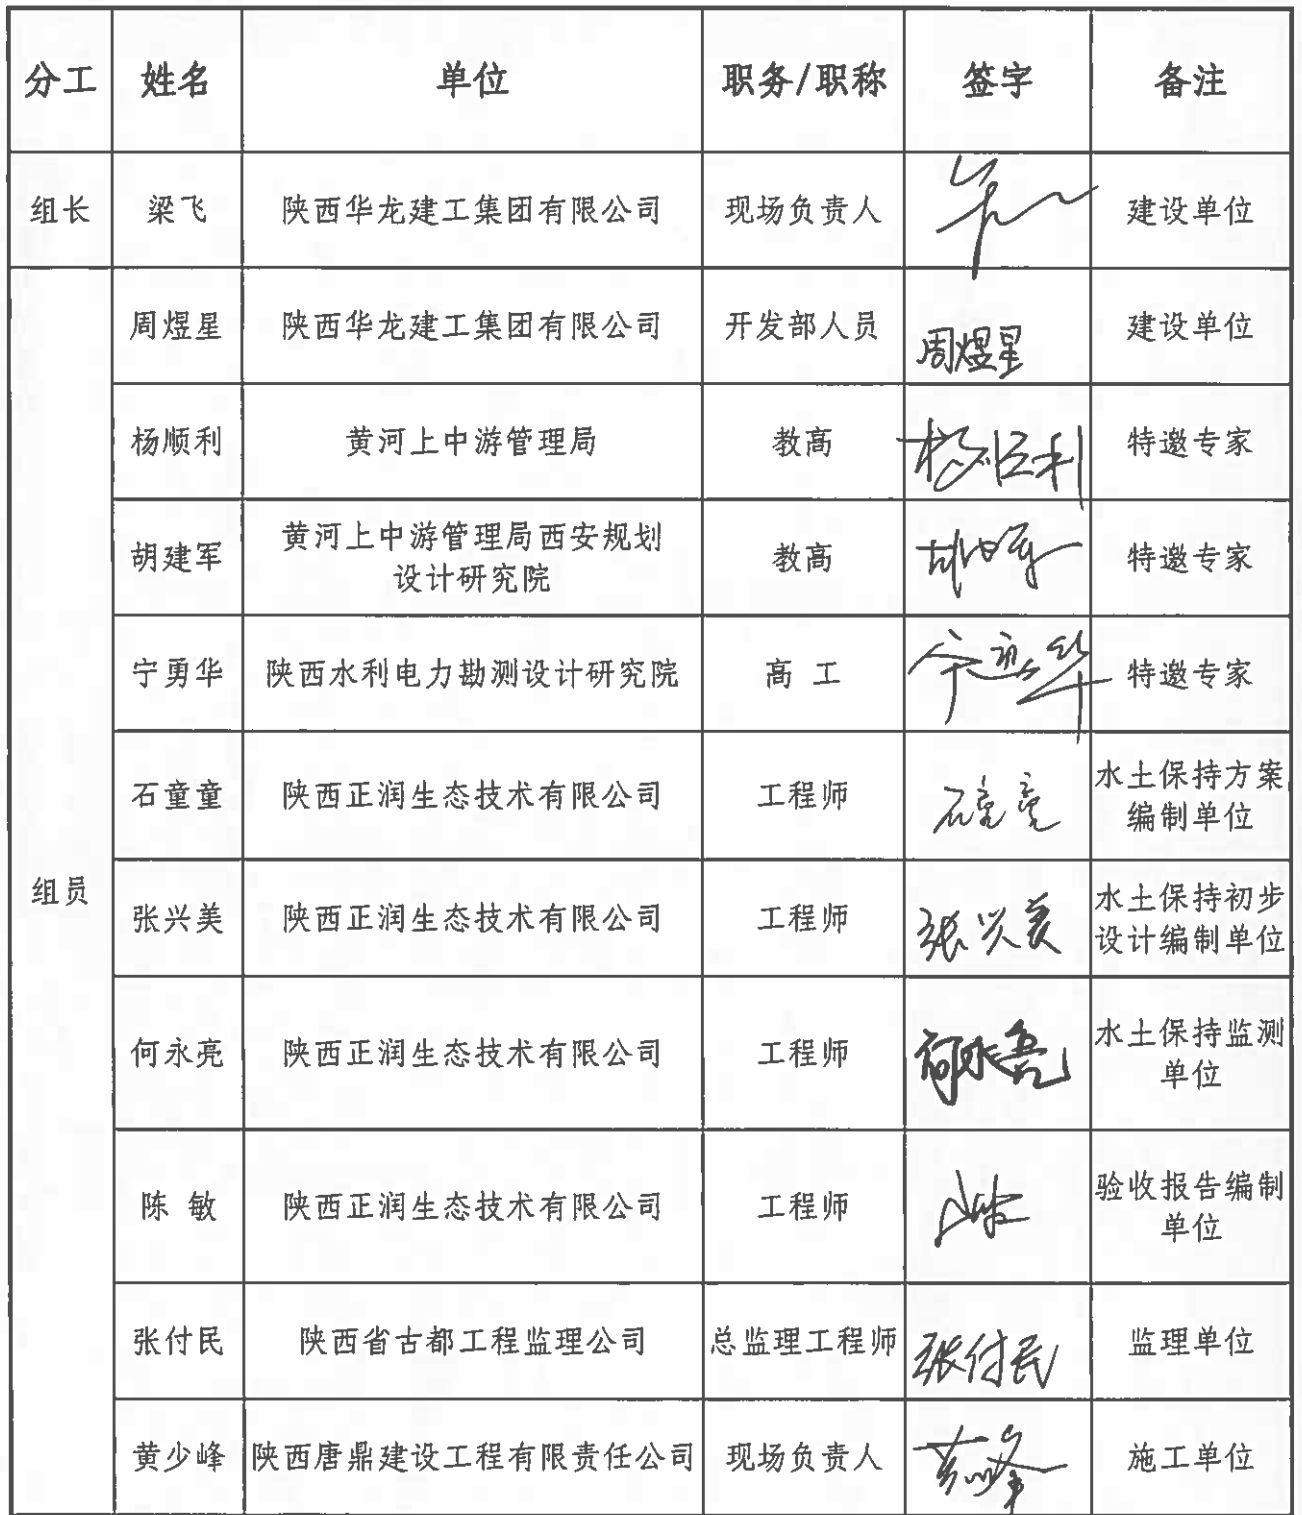 分工 姓名 单位 职务/职称 签字 备注
组长 梁飞 陕西华龙建工集团有限公司 现场负责人 建设单位
组员
周煜星 陕西华龙建工集团有限公司 开发部人员 周煜星 建设单位
杨顺利 黄河上中游管理局 教高 杨顺利 特邀专家
胡建军 黄河上中游管理局西安规划
设计研究院 教高 特邀专家
宁勇华 陕西水利电力勘测设计研究院 高 工 宁勇华 特邀专家
石童童 陕西正润生态技术有限公司 工程师 石童童 水土保持方案
编制单位
张兴美 陕西正润生态技术有限公司 工程师 张兴美 水土保持初步
设计编制单位
何永亮 陕西正润生态技术有限公司 工程师 何永亮 水土保持监测
单位
陈 敏 陕西正润生态技术有限公司 工程师 验收报告编制
单位
张付民 陕西省古都工程监理公司 总监理工程师 张付民 监理单位
黄少峰 陕西唐鼎建设工程有限责任公司 现场负责人 黄少峰 施工单位